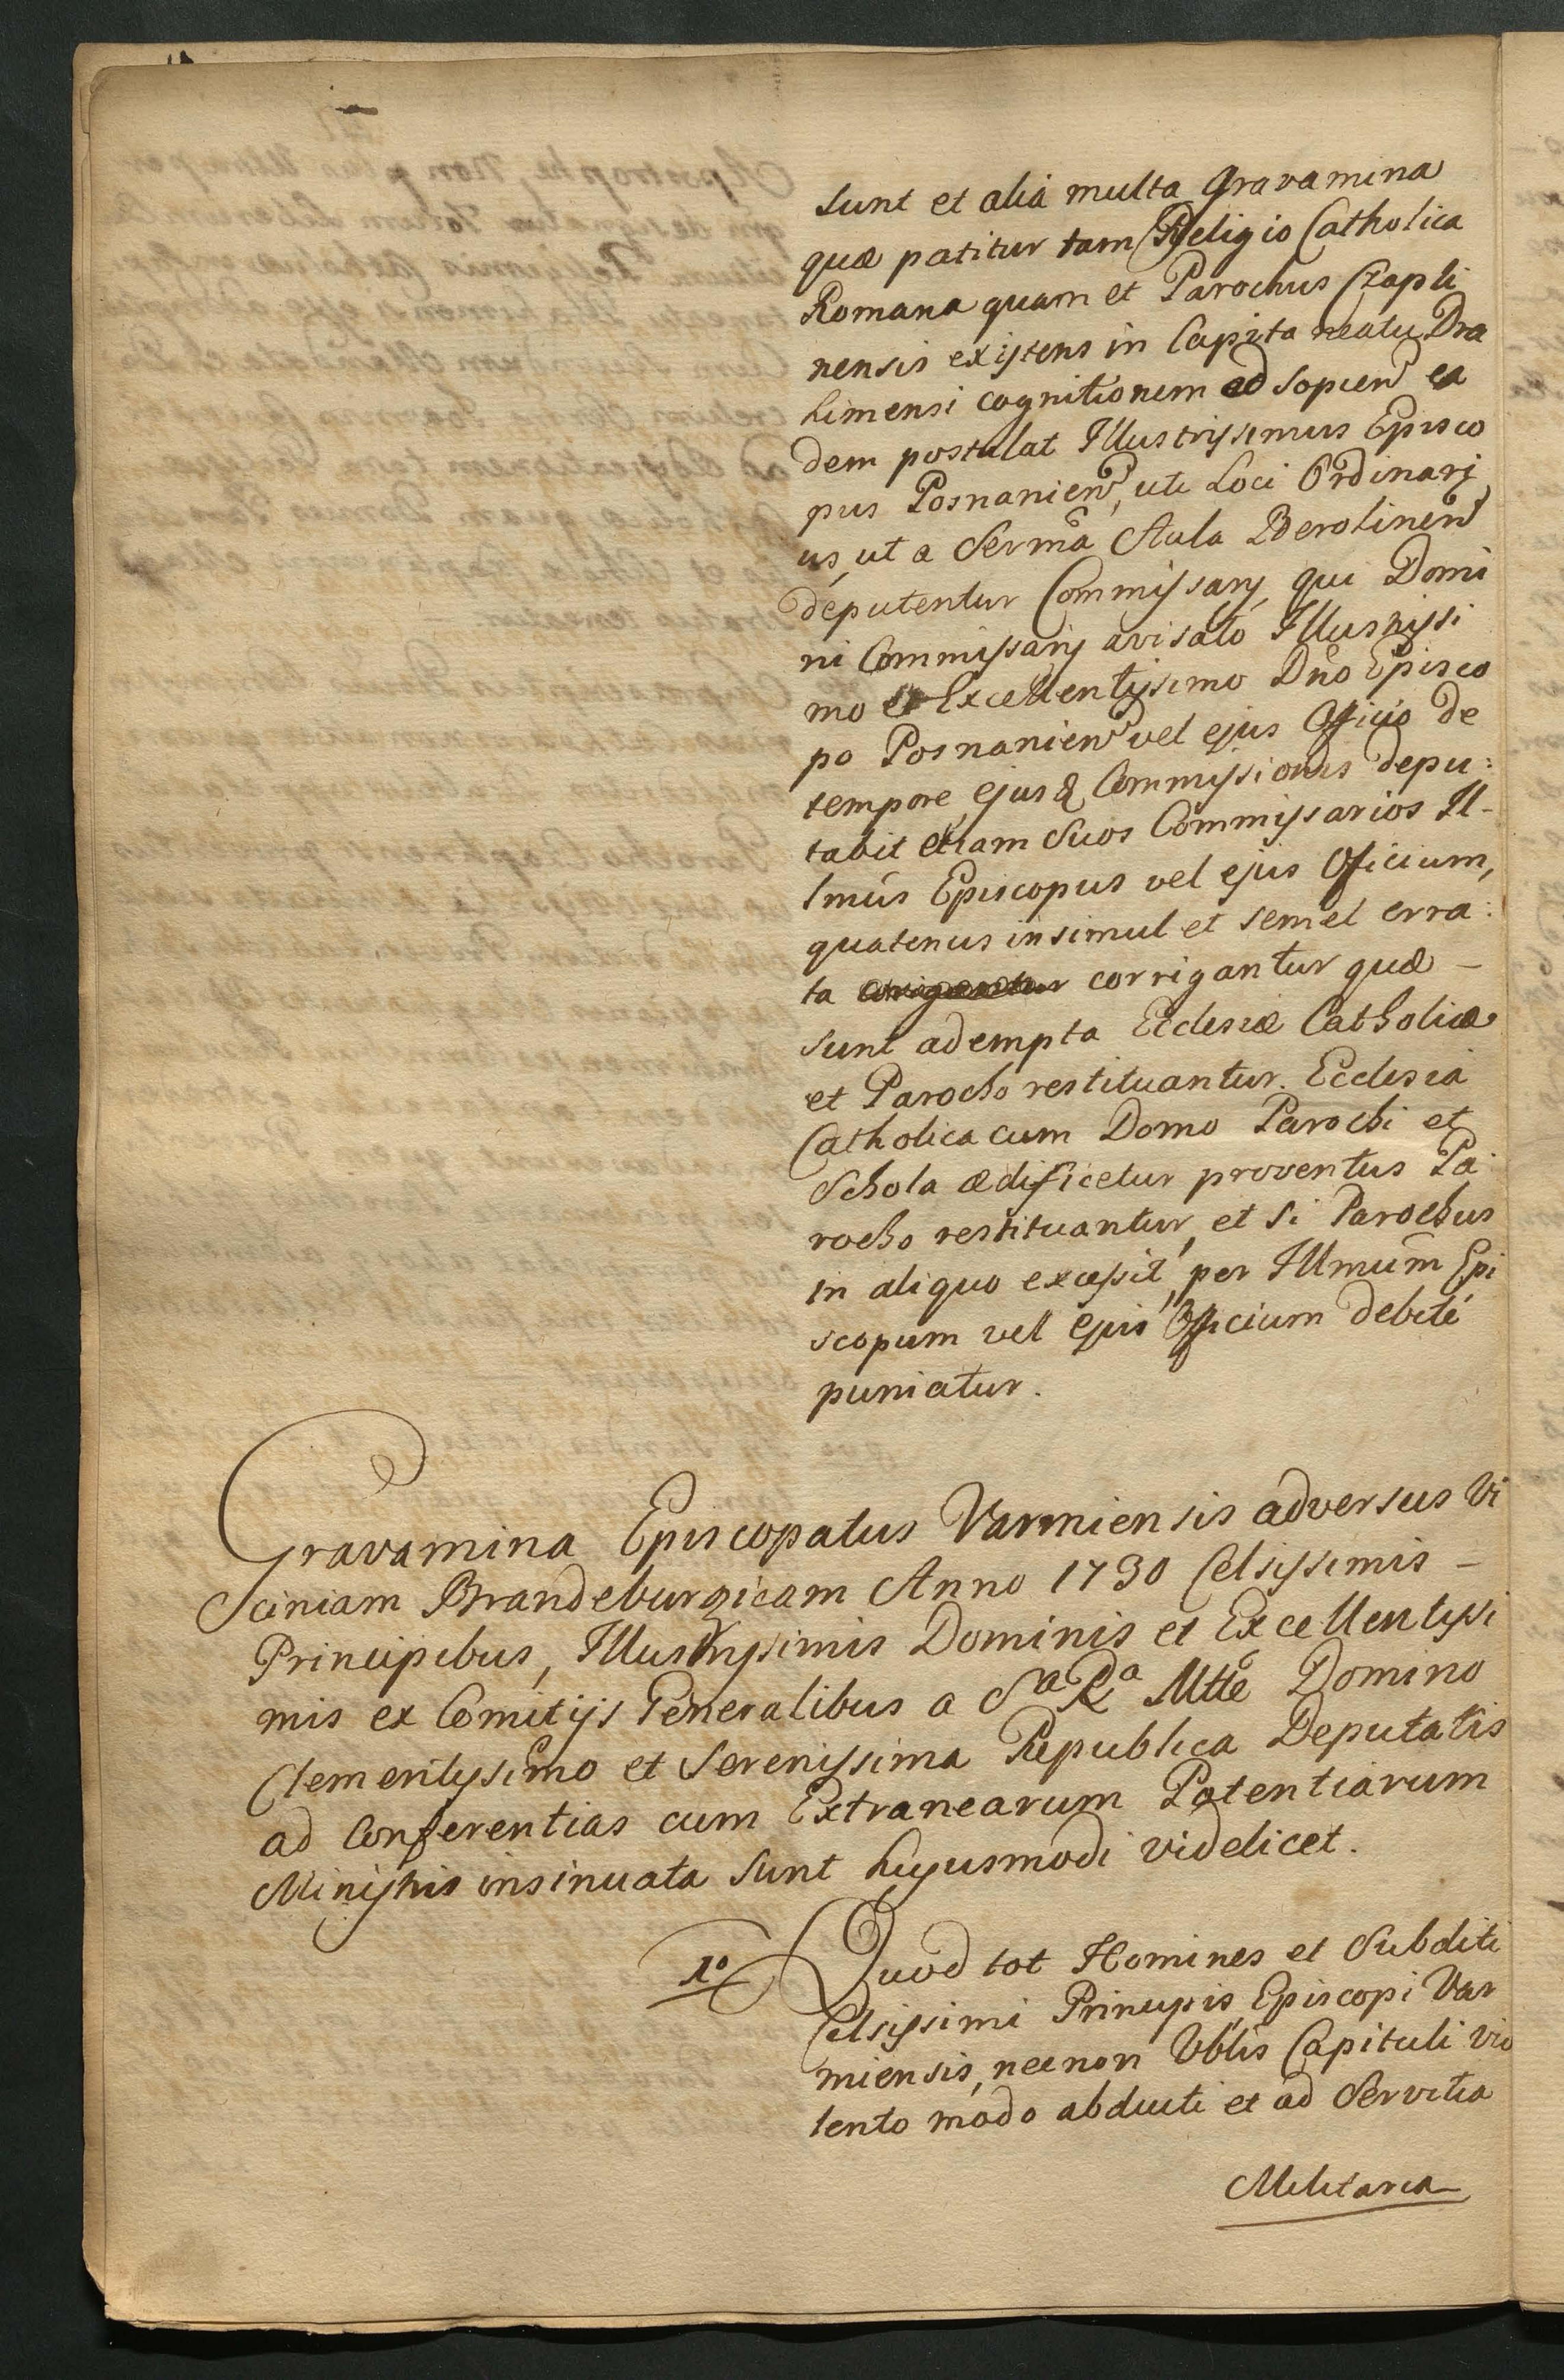 sunt et alia multa gravamina
quæ patitur tam Religio Catholica
Romana quam et Parochus Czapli
nensis existens in Capitaneatu Dra
himensi cognitionem ad sopien̄ ea
dem postulat Illustrissimus Episco
pus Posnanien̄, uti Loci Ordinarj
us, ut a Serm̄a Aula Berolinen̄
deputentur Commissarij, qui Domi
ni Commissarij avisato Illustrissi
mo et Excellentissimo Dn̄o Episco
po Posnanien̄ vel ejus Officio de
tempore ejusq Commissionis depu:
tabit etiam Suos Commissarios Il-
lmūs Episcopus vel ejus Officium,
quatenus insimul et semel erra:
ta corrigantur quæ -
sunt adempta Ecclesiæ Catholicæ
et Parocho restituantur. Ecclesia
Catholica cum Domo Parochi et
Schola ædificetur proventus Pa
rocho restituantur, et si Parochus
in aliquo excessit, per Illmum̄ Epi
scopum vel ejus Officium debité
puniatur.
Gravamina Episcopatus Varmiensis adversus Vi
ciniam Brandeburgicam Anno 1730 Celsissimis -
Principibus, Illustrissimis Dominis et Excellentissi
mis ex Comitijs Generalibus a Sa Ra Mtte Domino
Clementissimo et Serenissima Republica Deputatis
ad Conferentias cum Extranearum Potentiarum
Ministris insinuata sunt hujusmodi videlicet.
1o Quod tot Homines et Subditi
Celsissimi Principis Episcopi Var
miensis, necnon Vblis Capituli vio
lento modo abducti et ad Servitia
Militaria